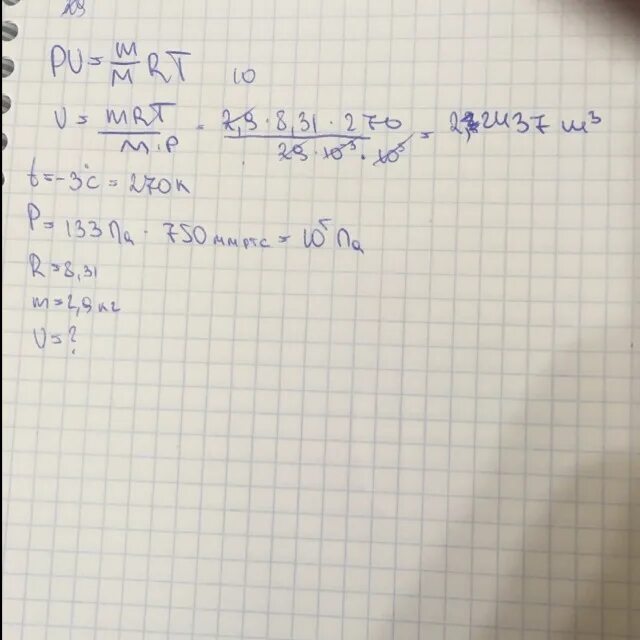 PV = m/M RT
10
V = mRT / M·P = 2,9 · 8,31 · 270 / 29 · 10⁻³ · 10⁵ = 2,2437 м³
t = -3°C = 270 К
P = 133 Па · 750 мм рт с = 10⁵ Па
R = 8,31
m = 2,9 кг
V = ?